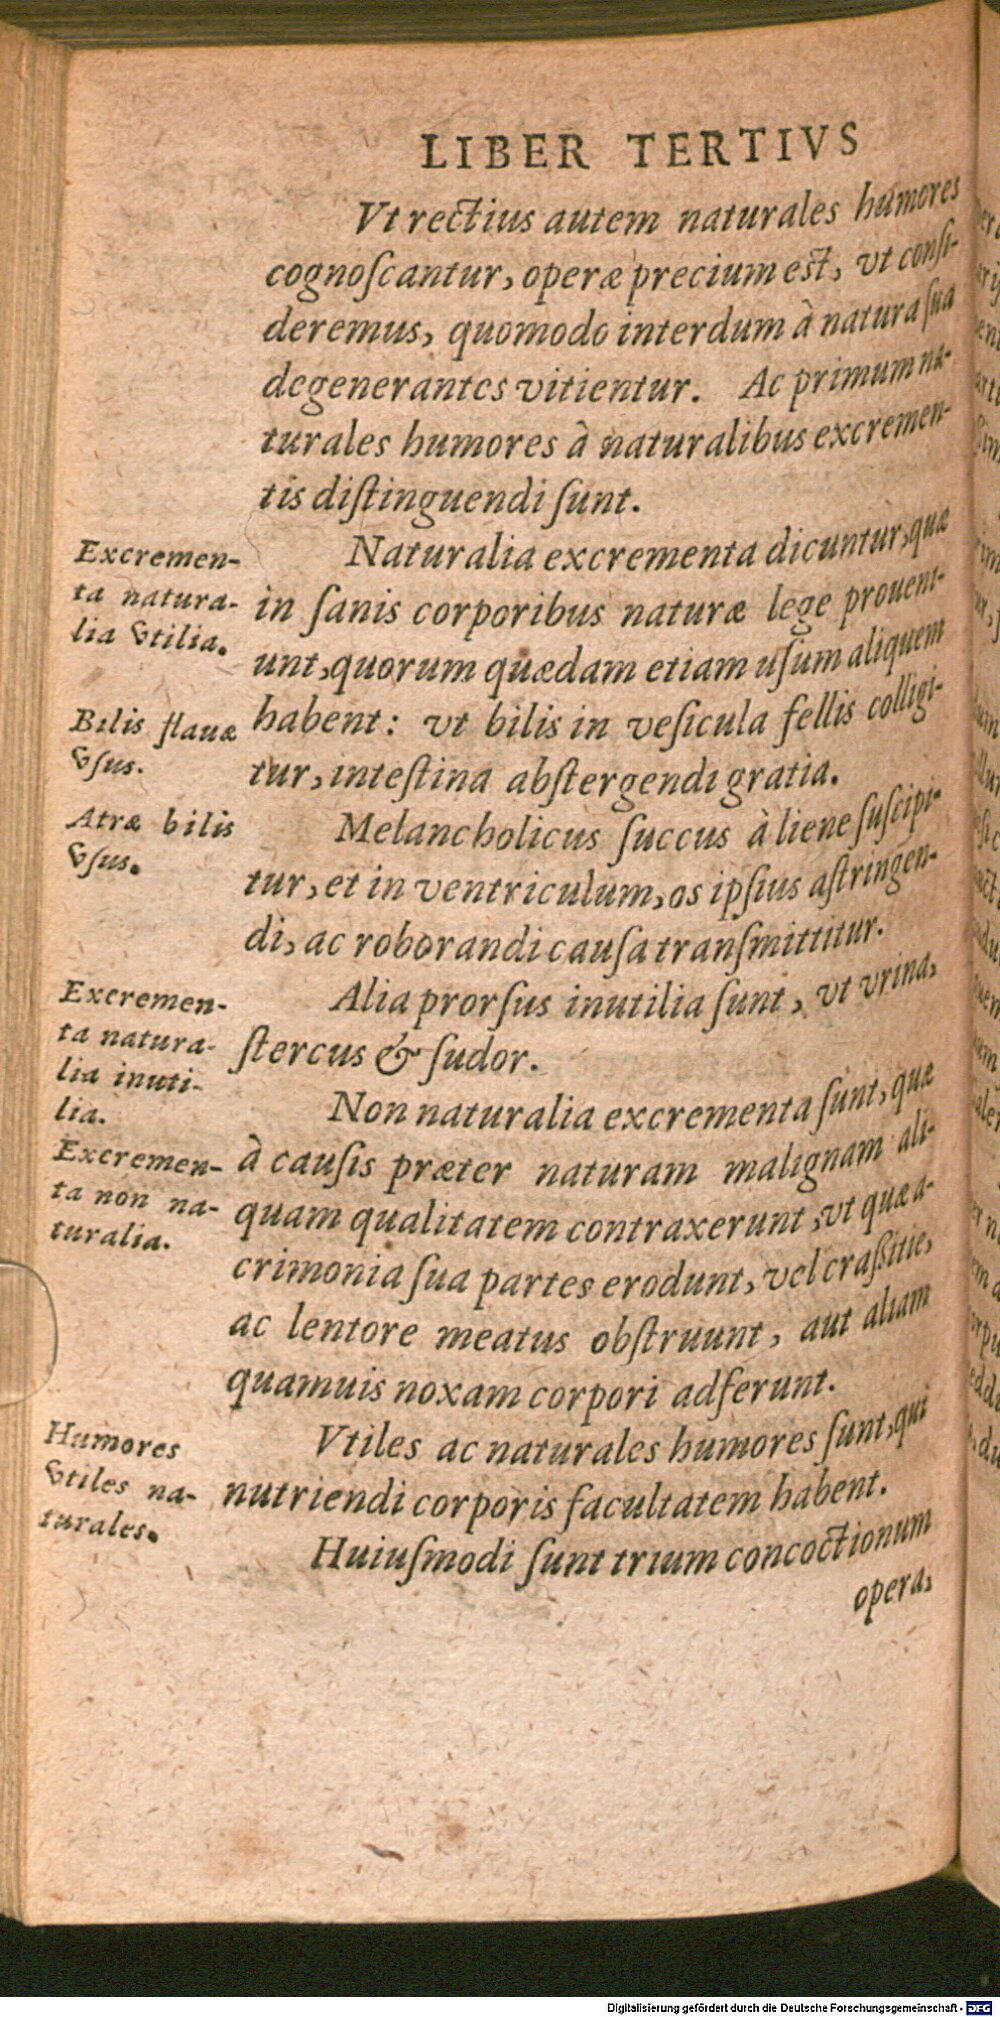 LIBER TERTIVS
Vt rectius autem naturales humores
cognoſcantur, operæ precium est, vt conſi-
deremus, quomodo interdum à natura ſua
degenerantes vitientur. Ac primum na-
turales humores à naturalibus excremen-
tis diſtinguendi ſunt.
Excremen-
ta natura-
lia vtilia.
Naturalia excrementa dicuntur, quæ
in ſanis corporibus naturæ lege proueni-
unt, quorum quædam etiam uſum aliquem
habent: vt bilis in veſicula fellis colligi-
tur, inteſtina abſtergendi gratia.
Bilis flauæ
vſus.
Atræ bilis
vſus.
Melancholicus ſuccus à liene ſuſcipi-
tur, et in ventriculum, os ipſius aſtringen-
di, ac roborandi cauſa tranſmittitur.
Excremen-
ta natura-
lia inuti-
lia.
Alia prorſus inutilia ſunt, vt vrina,
ſtercus & ſudor.
Excremen-
ta non na-
turalia.
Non naturalia excrementa ſunt, quæ
à cauſis præter naturam malignam ali-
quam qualitatem contraxerunt, vt quæ a-
crimonia ſua partes erodunt, vel craſſitie,
ac lentore meatus obſtruunt, aut aliam
quamuis noxam corpori adferunt.
Humores
vtiles na-
turales.
Vtiles ac naturales humores ſunt, qui
nutriendi corporis facultatem habent.
Huiuſmodi ſunt trium concoctionum
opera,
Digitalisierung gefördert durch die Deutsche Forschungsgemeinschaft - DFG